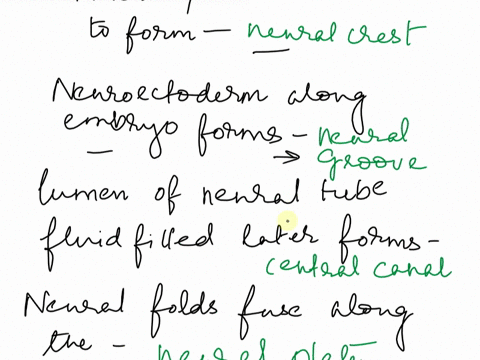 to form - neural crest
Neuroectoderm along
embryo forms - neural
→ groove
lumen of neural tube
fluid filled later forms -
central canal
Neural folds fuse along
the - neural